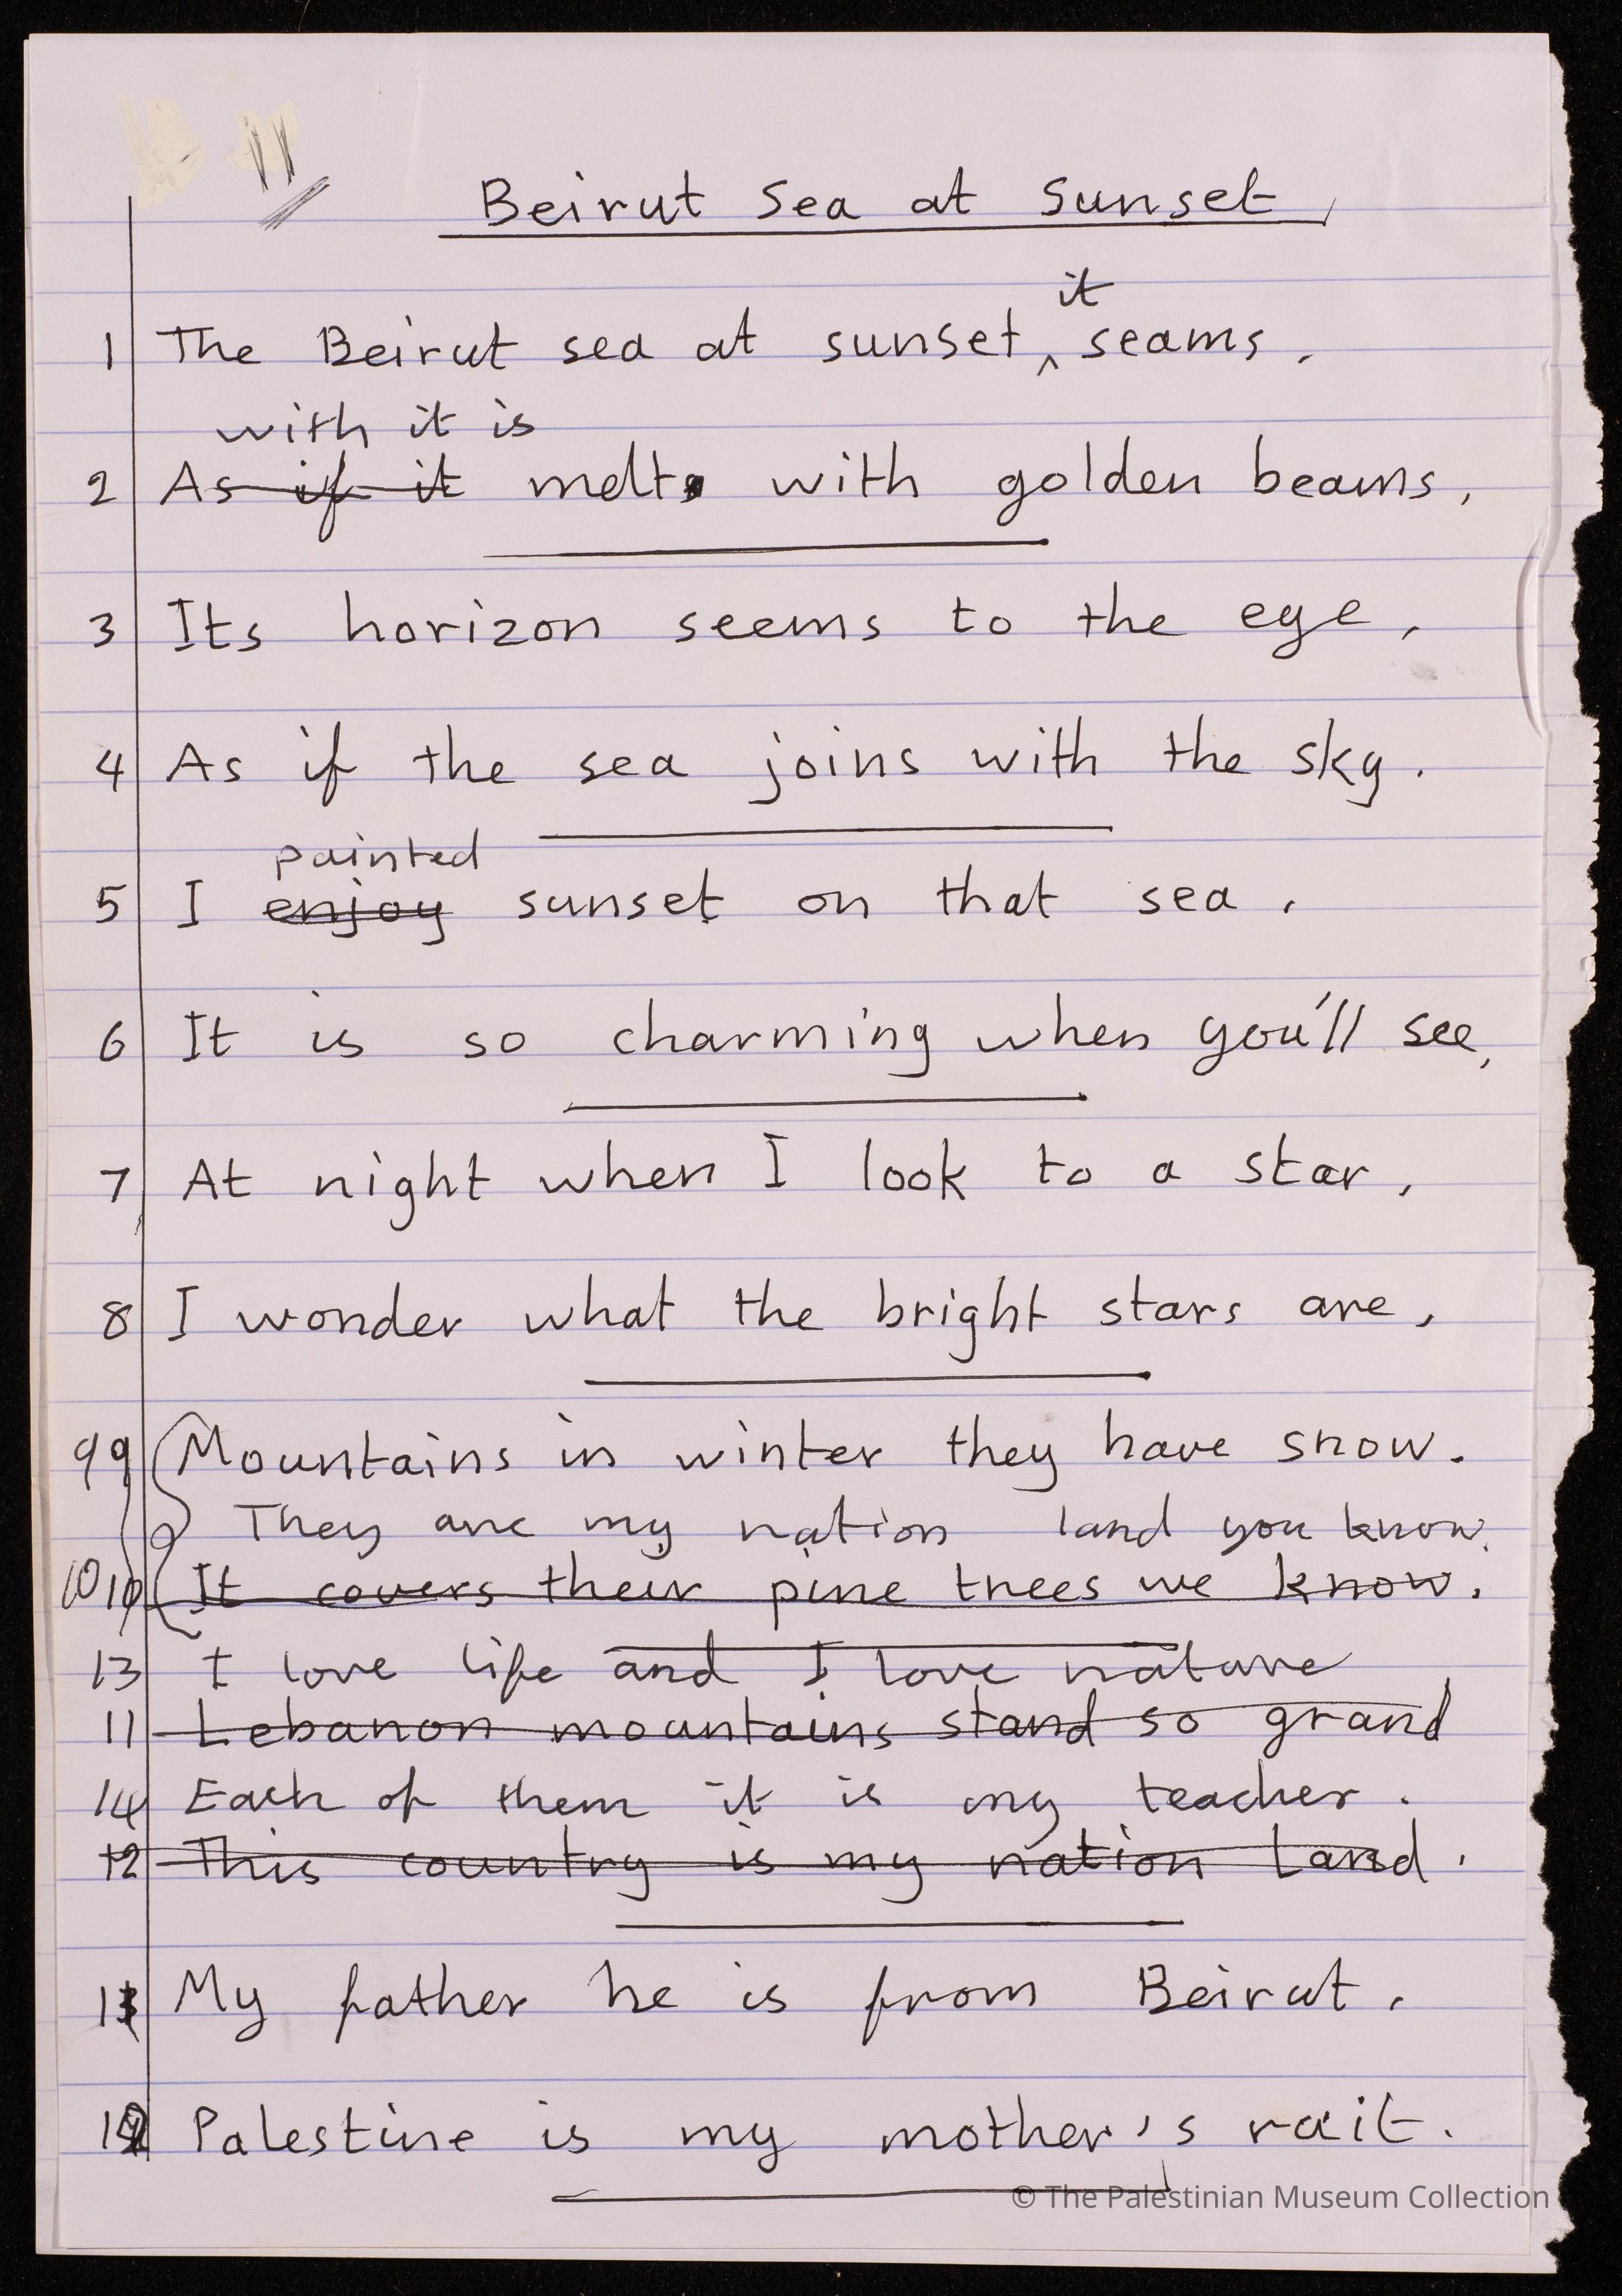 11
Beirut Sea at Sunset
it
1 The Beirut sea at sunset, ^ seams,
with it is
2 As if it melt with golden beams,
3 Its horizon seems to the eye,
4 As if the sea joins with the sky.
painted
5 I enjoy sunset on that sea,
6 It is so charming when you'll see,
7 At night when I look to a star,
8 I wonder what the bright stars are,
99 Mountains in winter they have snow.
They are my nation land you know.
1010 It covers their pine trees we know.
13 I love life and I love nature
11 Lebanon mountains stand so grand
14 Each of them it is my teacher.
12 This country is my nation Land.
11 My father he is from Beirut,
12 Palestine is my mother's rait.
© The Palestinian Museum Collection